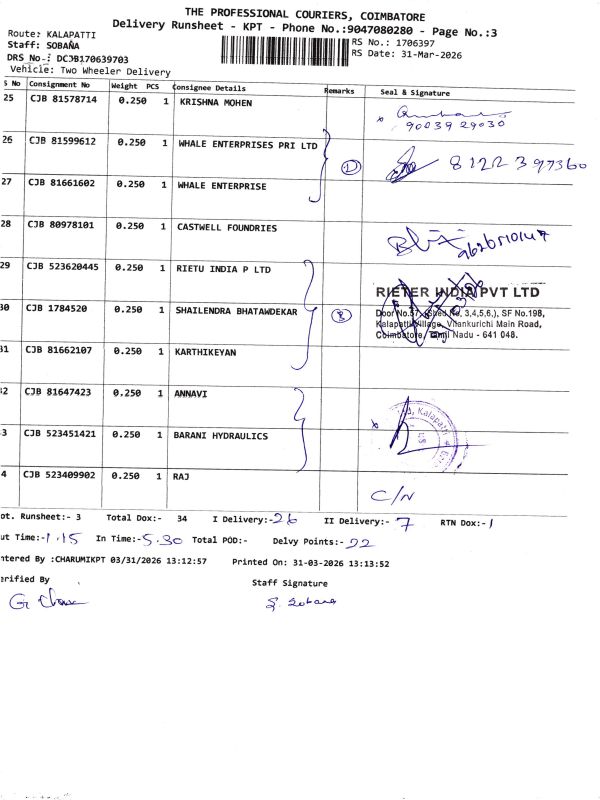 THE PROFESSIONAL COURIERS, COIMBATORE
Delivery Runsheet - KPT - Phone No.:9047080280 - Page No.:3
Route: KALAPATTI
Staff: SOBANA
DRS No-: DCJB170639703
Vehicle: Two Wheeler Delivery
RS No.: 1706397
RS Date: 31-Mar-2026
S No Consignment No Weight PCS Consignee Details Remarks Seal & Signature
25 CJB 81578714 0.250 1 KRISHNA MOHEN
90039 29030
26 CJB 81599612 0.250 1 WHALE ENTERPRISES PRI LTD
8122397360
27 CJB 81661602 0.250 1 WHALE ENTERPRISE
28 CJB 80978101 0.250 1 CASTWELL FOUNDRIES
29 CJB 523620445 0.250 1 RIETU INDIA P LTD
RIETER INDIA PVT LTD
30 CJB 1784520 0.250 1 SHAILENDRA BHATAWDEKAR
Door No.57, (Shed No, 3,4,5,6,), SF No.198,
Kalapatti Village, Vilankurichi Main Road,
Coimbatore, Tamil Nadu - 641 048.
31 CJB 81662107 0.250 1 KARTHIKEYAN
32 CJB 81647423 0.250 1 ANNAVI
33 CJB 523451421 0.250 1 BARANI HYDRAULICS
Kalapatti
4 CJB 523409902 0.250 1 RAJ
C/N
ot. Runsheet:- 3 Total Dox:- 34 I Delivery:-26 II Delivery:- 7 RTN Dox:-1
ut Time:-1.15 In Time:-5.30 Total POD:- Delvy Points:-22
ntered By :CHARUMIKPT 03/31/2026 13:12:57 Printed On: 31-03-2026 13:13:52
erified By Staff Signature
S. Sobana